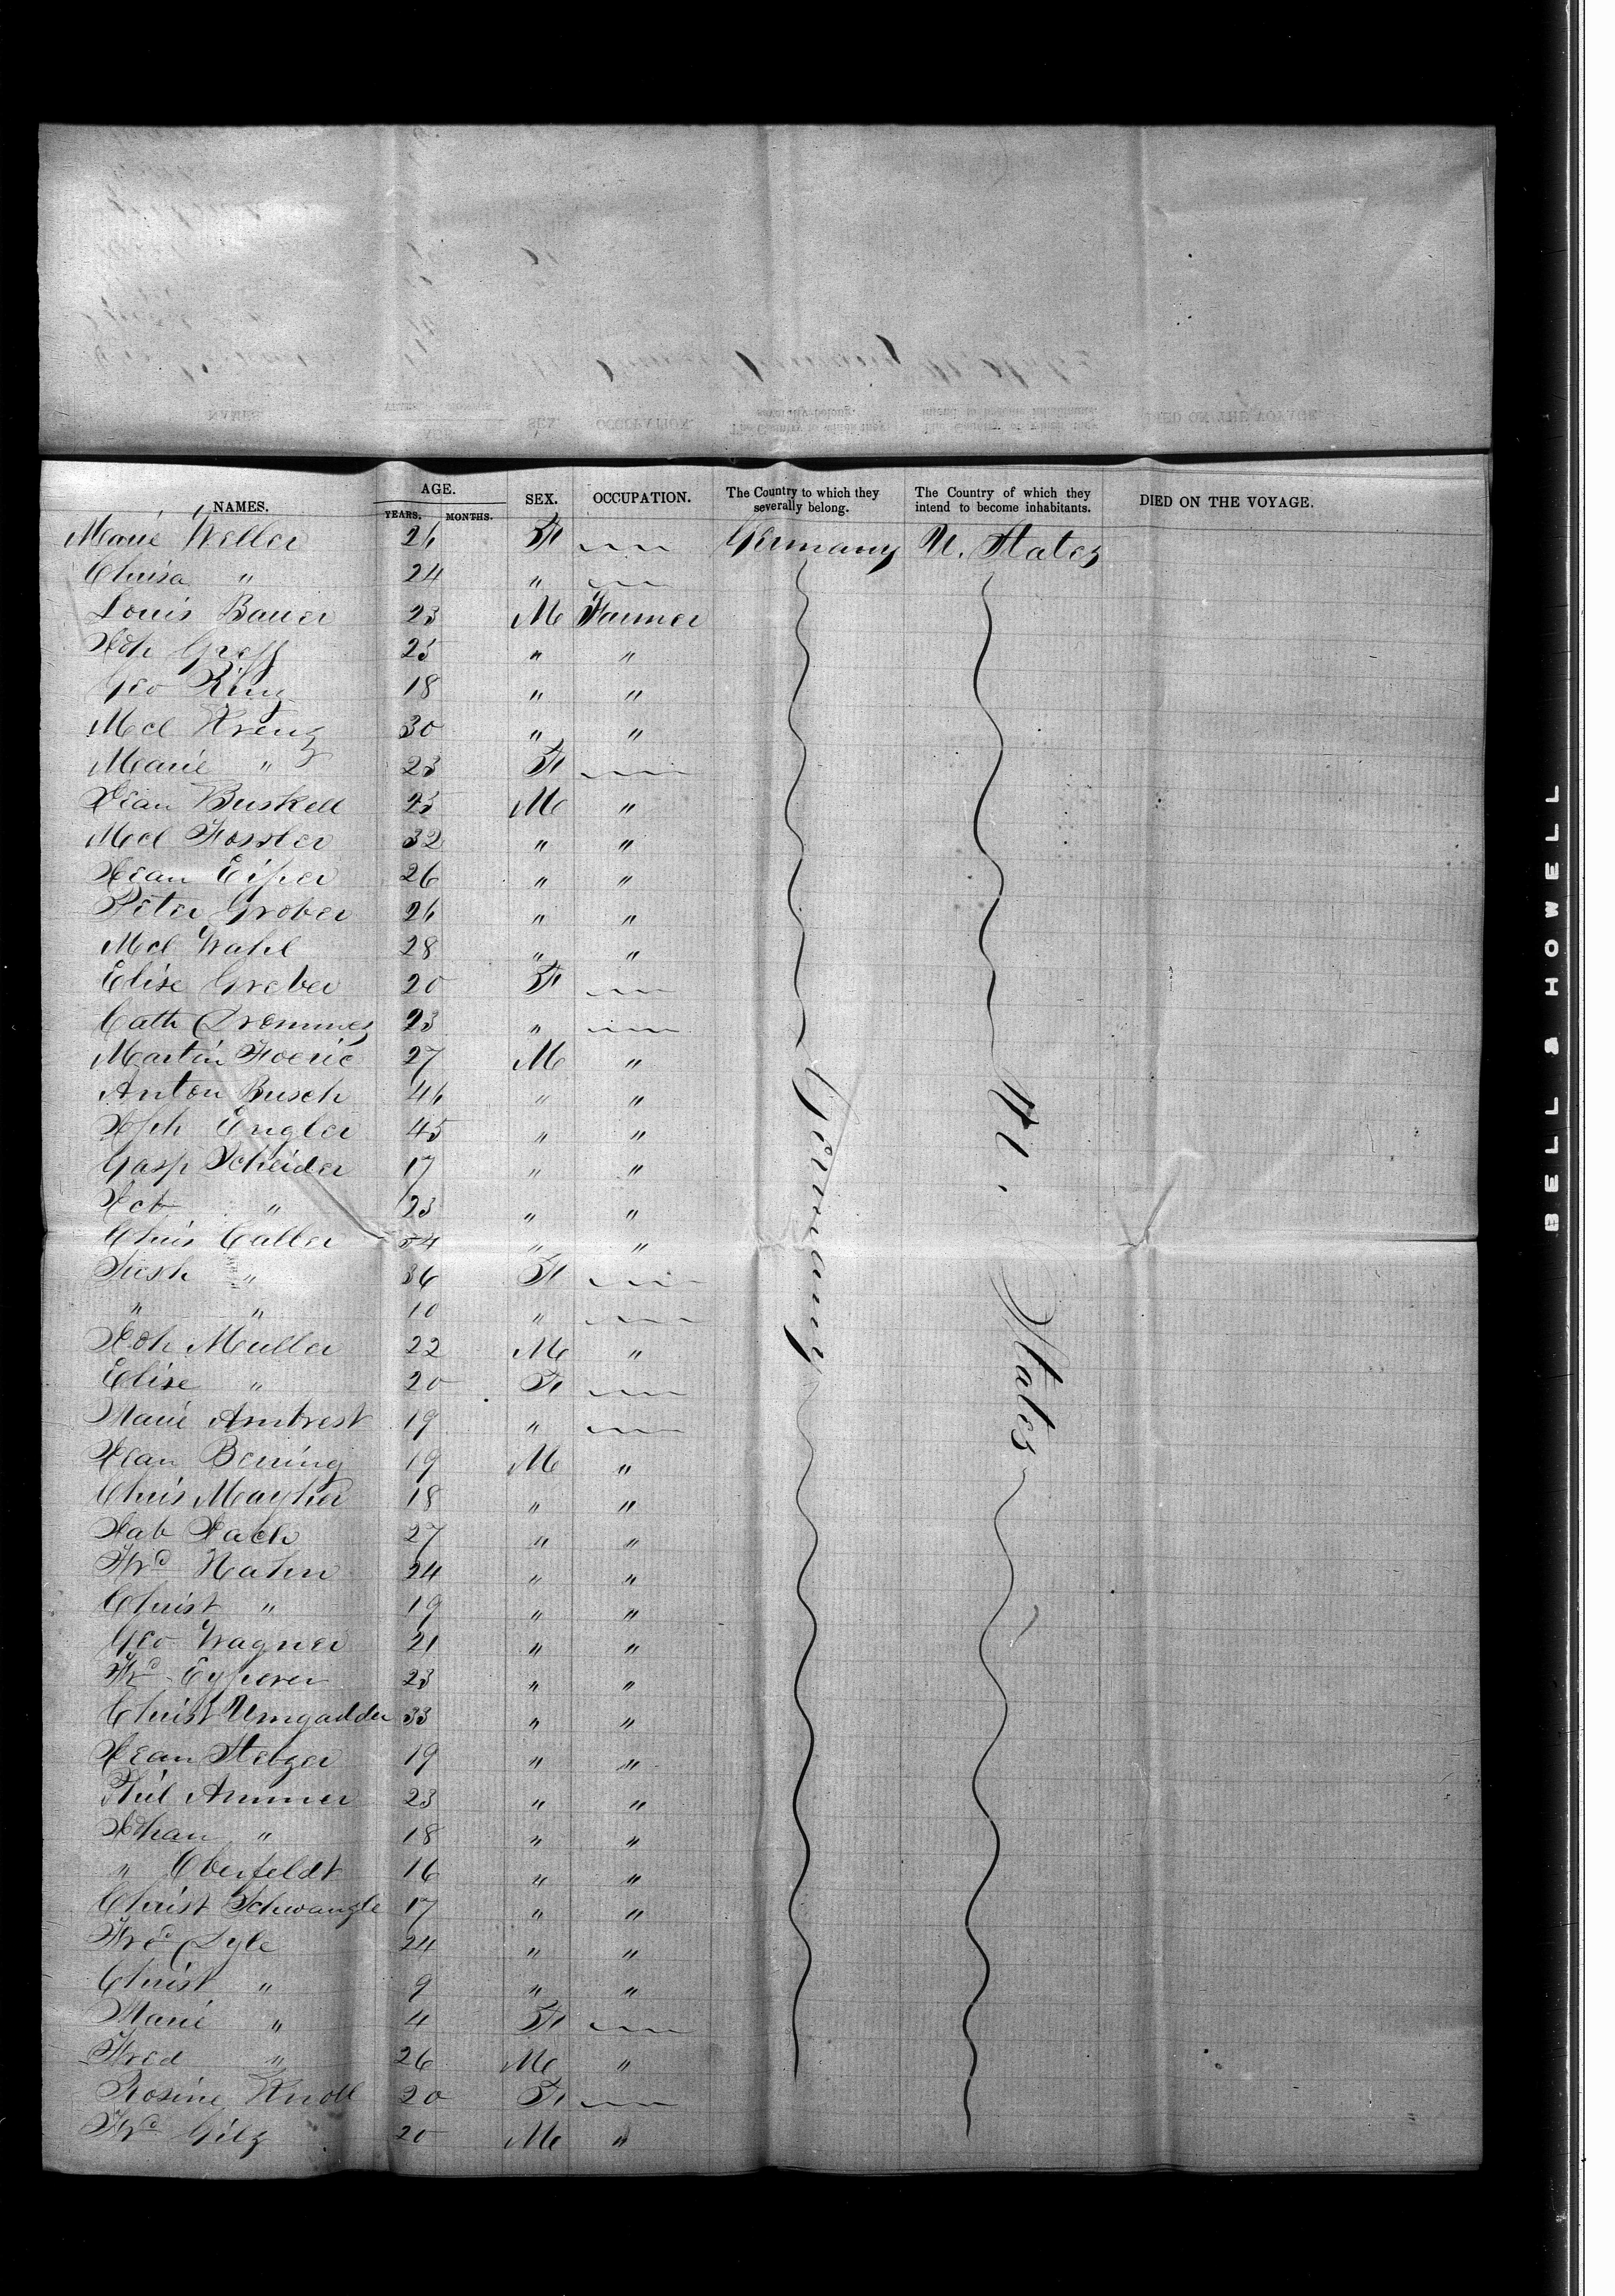 NAMES. AGE. YEARS. MONTHS. SEX. OCCUPATION. The Country to which they severally belong. The Country of which they intend to become inhabitants. DIED ON THE VOYAGE.
Marie Weller 26 F Germany U. States
Chrisa " 24 "
Louis Bauer 23 M Farmer
Joh Greff 25 " "
Geo King 18 " "
Mcl Kreng 30 " "
Marie " 23 F
Jean Buskell 25 M "
Mcl Fossler 32 " "
Jean Eiper 26 " "
Peter Grober 26 " "
Mcl Wahl 28 " "
Elise Greber 20 F
Cath Drommes 23 "
Martin Foerie 27 M "
Anton Busch 46 " "
Jph Engler 45 " "
Gasp Scheider 17 " "
Jcb " 23 " "
Chris Caller 54 " "
" 36 F
" " 10 "
Joh Muller 22 M "
Elise " 20 F
Marie Ambrest 19 "
Jean Bening 19 M "
Chris Mayher 18 " "
Jab Jach 27 " "
Frd Hahn 24 " "
Christ " 19 " "
Geo Wagner 21 " "
Frd Eyperer 23 " "
Christ Umgadder 33 " "
Jean Stelzer 19 " "
Phil Ammer 23 " "
Johan " 18 " "
" Oberfeldt 16 " "
Christ Schwangle 17 " "
Fred Dyle 24 " "
Christ " 9 " "
Marie " 4 F
Fred " 26 M "
Rosine Knoll 20 F
Frd Gilz 20 M "
Germany
U. States
BELL & HOWELL